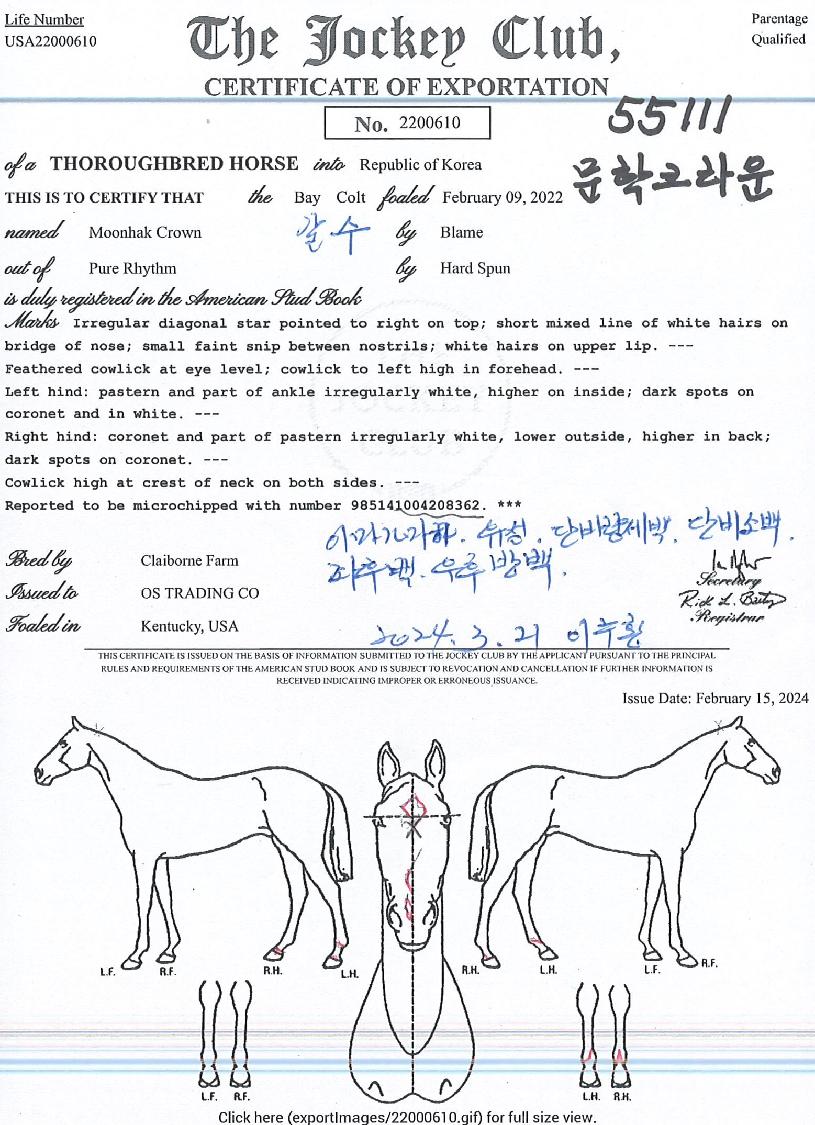 Life Number
USA22000610
Parentage
Qualified
The Jockey Club,
CERTIFICATE OF EXPORTATION
No. 2200610
55111
of a THOROUGHBRED HORSE into Republic of Korea
문학크라운
THIS IS TO CERTIFY THAT the Bay Colt foaled February 09, 2022
named Moonhak Crown 갈 수 by Blame
out of Pure Rhythm by Hard Spun
is duly registered in the American Stud Book
Marks Irregular diagonal star pointed to right on top; short mixed line of white hairs on
bridge of nose; small faint snip between nostrils; white hairs on upper lip. ---
Feathered cowlick at eye level; cowlick to left high in forehead. ---
Left hind: pastern and part of ankle irregularly white, higher on inside; dark spots on
coronet and in white. ---
Right hind: coronet and part of pastern irregularly white, lower outside, higher in back;
dark spots on coronet. ---
Cowlick high at crest of neck on both sides. ---
Reported to be microchipped with number 985141004208362. ***
유성. 단비소백.
Bred by Claiborne Farm
좌후백. 우후
Secretary
Issued to OS TRADING CO
Registrar
Foaled in Kentucky, USA
2024. 3. 21
THIS CERTIFICATE IS ISSUED ON THE BASIS OF INFORMATION SUBMITTED TO THE JOCKEY CLUB BY THE APPLICANT PURSUANT TO THE PRINCIPAL
RULES AND REQUIREMENTS OF THE AMERICAN STUD BOOK AND IS SUBJECT TO REVOCATION AND CANCELLATION IF FURTHER INFORMATION IS
RECEIVED INDICATING IMPROPER OR ERRONEOUS ISSUANCE.
Issue Date: February 15, 2024
L.F. R.F. R.H. L.H. R.H. L.H. L.F. R.F.
L.F. R.F. L.H. R.H.
Click here (exportImages/22000610.gif) for full size view.